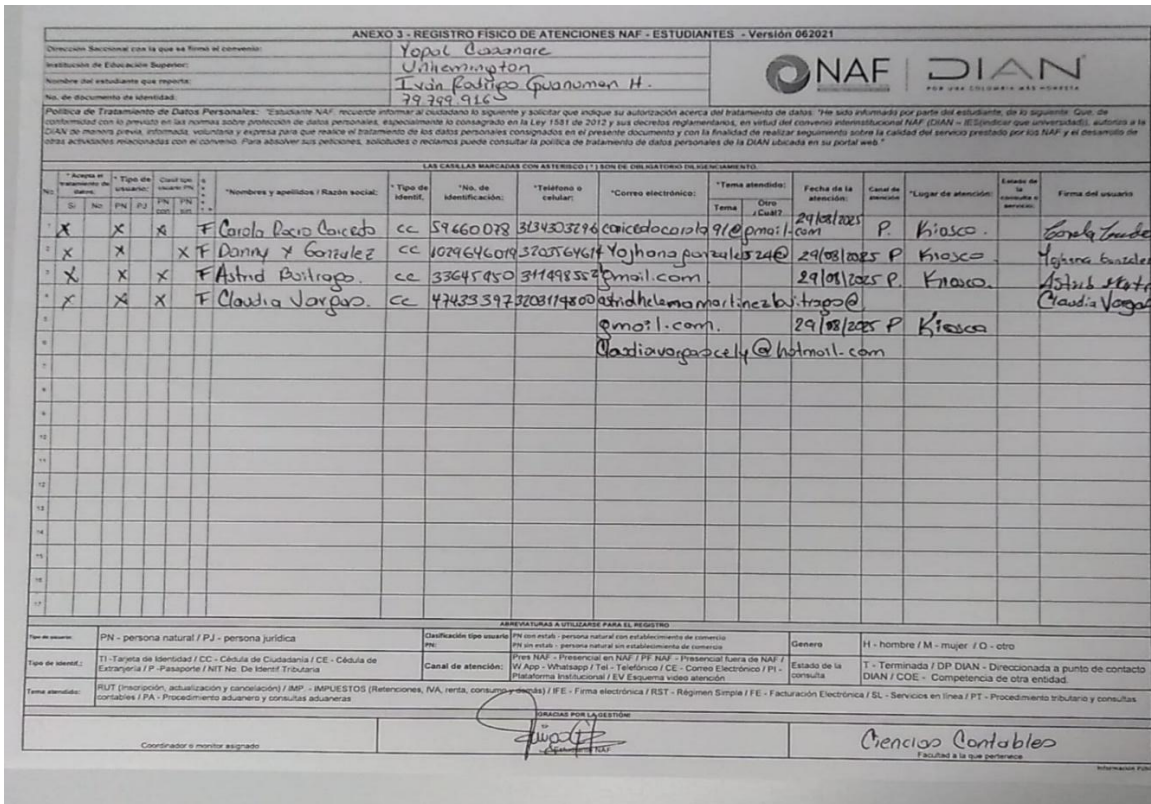 ANEXO 3 - REGISTRO FÍSICO DE ATENCIONES NAF - ESTUDIANTES - Versión 062021
Dirección Seccional con la que se firmó el convenio: Yopal Casanare
Institución de Educación Superior: Uniremington
Nombre del estudiante que reporta: Iván Rodrigo Guanuman H.
No. de documento de identidad: 79.799.916
NAF DIAN
POR UNA COLOMBIA MÁS HONESTA
Política de Tratamiento de Datos Personales: "Estudiante NAF, recuerde informar al ciudadano lo siguiente y solicitar que indique su autorización acerca del tratamiento de datos. "He sido informado por parte del estudiante, de lo siguiente: Que, de
conformidad con lo previsto en las normas sobre protección de datos personales, especialmente lo consagrado en la Ley 1581 de 2012 y sus decretos reglamentarios, en virtud del convenio interinstitucional NAF (DIAN – IES(indicar que universidad)), autorizo a la
DIAN de manera previa, informada, voluntaria y expresa para que realice el tratamiento de los datos personales consignados en el presente documento y con la finalidad de realizar seguimiento sobre la calidad del servicio prestado por los NAF y el desarrollo de
otras actividades relacionadas con el convenio. Para absolver sus peticiones, solicitudes o reclamos puede consultar la política de tratamiento de datos personales de la DIAN ubicada en su portal web."
LAS CASILLAS MARCADAS CON ASTERISCO ( * ) SON DE OBLIGATORIO DILIGENCIAMIENTO.
No. * Acepta el tratamiento de datos: * Tipo de usuario: *Nombres y apellidos / Razón social: * Tipo de identif. *No. de identificación: *Teléfono o celular: *Correo electrónico: *Tema atendido: Fecha de la atención: Canal de atención *Lugar de atención: Estado de la consulta o servicio: Firma del usuario
Si No PN PJ PN con PN sin Tema Otro ¿Cuál?
1 X X X F Carola Rocio Caicedo cc 59660078 3134303296 caicedocarola91@gmail.com 29/08/2025 P. Kiosco.
2 X X X F Danny Y Gonzalez cc 1029646019 3203564614 Yojhanagonzalez524@ 29/08/2025 P Kiosco. Yojhana Gonzalez
3 X X X F Astrid Buitrago. cc 33645950 311498552 gmail.com 29/08/2025 P. Kiosco. Astrid
4 X X X F Claudia Vargas. cc 47433397 3203119800 astridhelenamartinezbuitrago@ Claudia Vargas
5 gmail.com. 29/08/2025 P Kiosco
6 Claudiavargascely@hotmail.com
7
8
9
10
11
12
13
14
15
16
17
ABREVIATURAS A UTILIZARSE PARA EL REGISTRO
Tipo de usuario: PN - persona natural / PJ - persona jurídica Clasificación tipo usuario PN: PN con estab - persona natural con establecimiento de comercio
PN sin estab - persona natural sin establecimiento de comercio Genero H - hombre / M - mujer / O - otro
Tipo de identif.: TI -Tarjeta de Identidad / CC - Cédula de Ciudadanía / CE - Cédula de
Extranjería / P -Pasaporte / NIT No. De Identif Tributaria
Canal de atención: Pres NAF - Presencial en NAF / PF NAF - Presencial fuera de NAF /
W App - Whatsapp / Tel - Telefónico / CE - Correo Electrónico / PI -
Plataforma Institucional / EV Esquema video atención
Estado de la consulta T - Terminada / DP DIAN - Direccionada a punto de contacto
DIAN / COE - Competencia de otra entidad.
Tema atendido: RUT (Inscripción, actualización y cancelación) / IMP. - IMPUESTOS (Retenciones, IVA, renta, consumo y demás) / IFE - Firma electrónica / RST - Régimen Simple / FE - Facturación Electrónica / SL - Servicios en línea / PT - Procedimiento tributario y consultas
contables / PA - Procedimiento aduanero y consultas aduaneras
GRACIAS POR LA GESTIÓN!
Coordinador o monitor asignado
NAF
Ciencias Contables
Facultad a la que pertenece